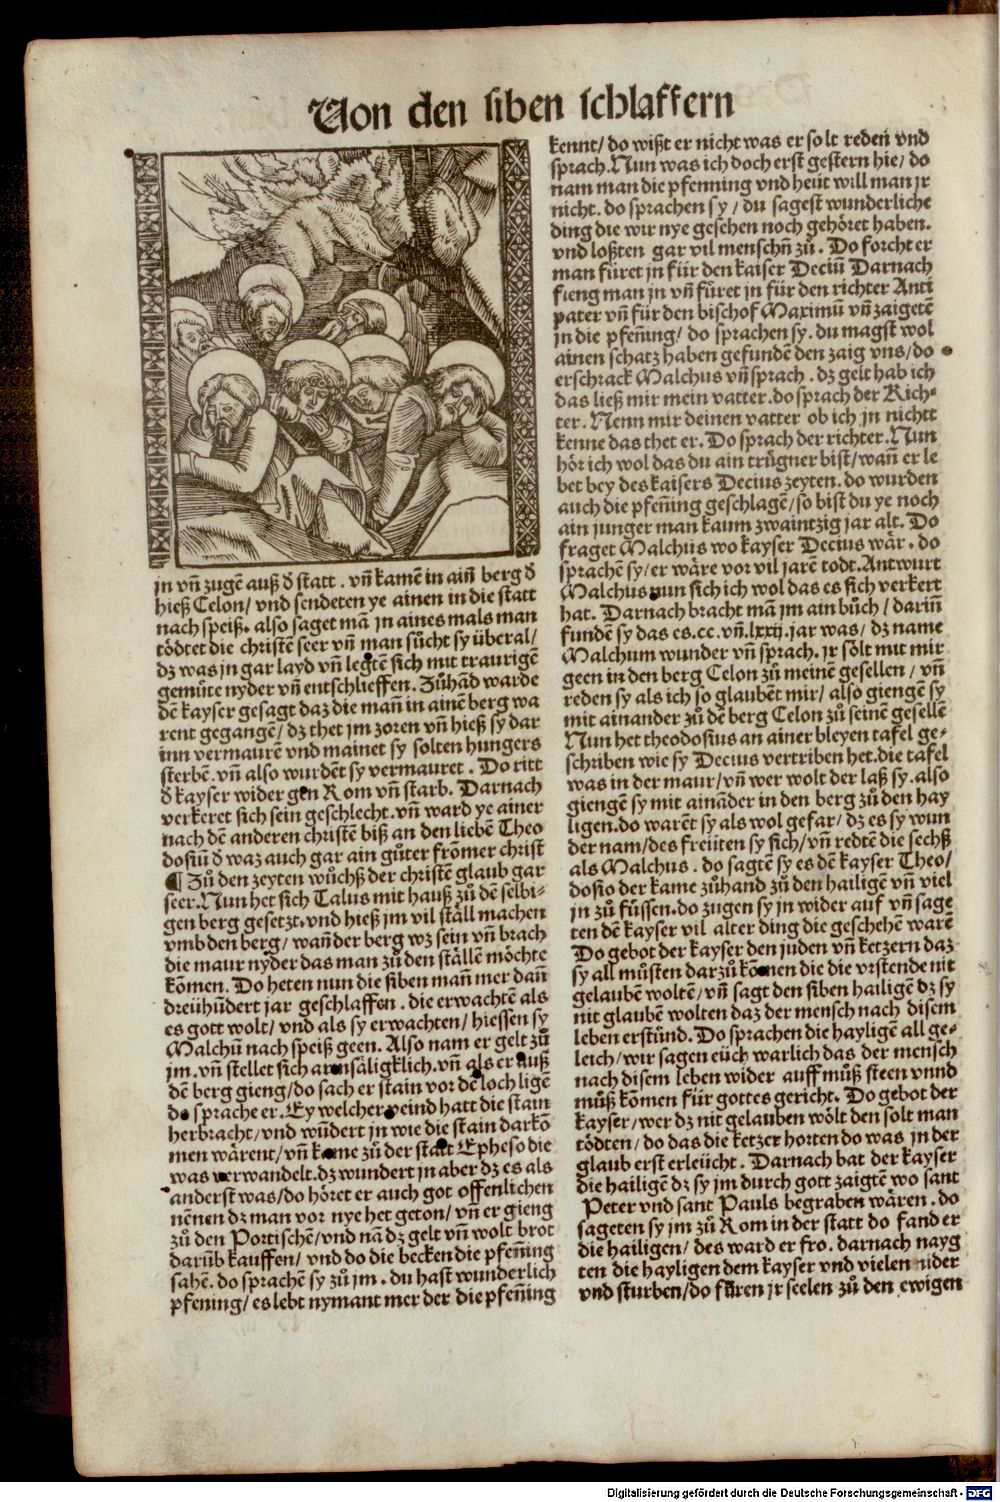 Von den siben schlaffern
jn vñ zugē auß d̄ statt . vñ kamē in ainē berg d̄
hieß Celon/ vnd sendeten ye ainen in die statt
nach speiß. also saget mā jn aines mals man
tödtet die christē seer vñ man sůcht sy überal/
dz was jn gar layd vñ legtē sich mit traurigē
gemüte nyder vñ entschlieffen. Zůhād warde
dē kayser gesagt daz die mañ in ainē berg wa
rent gegangē/ dz thet jm zoren vñ hieß sy dar
inn vermaurē vnd mainet sy solten hungers
sterbē. vñ also wurdēt sy vermauret . Do ritt
d̄ kayser wider gen Rom vñ starb. Darnach
verkeret sich sein geschlecht. vñ ward ye ainer
nach dē anderen christē biß an den liebē Theo
dosiū d̄ waz auch gar ain gůter frōmer christ
¶ Zů den zeyten wůchß der christē glaub gar
seer. Nun het sich Talus mit hauß zů dē selbi-
gen berg gesetzt. vnd hieß jm vil ställ machen
vmb den berg/ wañ der berg wz sein vñ brach
die maur nyder das man zů den ställē möchte
kōmen. Do heten nun die siben mañ mer dañ
dreühūdert jar geschlaffen . die erwachtē als
es gott wolt/ vnd als sy erwachten/ hiessen sy
Malchū nach speiß geen. Also nam er gelt zů
jm. vñ stellet sich armsäligklich. vñ als er auß
dē berg gieng/ do sach er stain vor dē loch ligē
do sprache er. Ey welcher veind hatt die stain
herbracht/ vnd wūdert jn wie die stain darkō
men wärent/ vñ kame zů der statt Epheso die
was verwandelt. dz wundert jn aber dz es als
anderst was/ do höret er auch got offenlichen
nēnen dz man vor nye het geton/ vñ er gieng
zů den Portischē/ vnd nā dz gelt vñ wolt brot
darūb kauffen/ vnd do die becken die pfeñing
sahē. do sprachē sy zů jm . du hast wunderlich
pfening/ es lebt nymant mer der die pfeñing
kennt/ do wißt er nicht was er solt reden vnd
sprach. Nun was ich doch erst gestern hie/ do
nam man die pfenning vnd heüt will man jr
nicht. do sprachen sy / du sagest wunderliche
ding die wir nye gesehen noch gehöret haben.
vnd loßten gar vil menschñ zů . Do forcht er
man füret jn für den kaiser Deciū Darnach
fieng man jn vñ fůret jn für den richter Anti
pater vñ für den bischof Maximū vñ zaigetē
jn die pfeñing/ do sprachen sy. du magst wol
ainen schatz haben gefundē den zaig vns/ do
erschrack Malchus vñ sprach . dz gelt hab ich
das ließ mir mein vatter. do sprach der Rich-
ter . Nenn mir deinen vatter ob ich jn nichtt
kenne das thet er. Do sprach der richter. Nun
hör ich wol das du ain trügner bist/ wañ er le
bet bey des kaisers Decius zeyten. do wurden
auch die pfeñing geschlagē/ so bist du ye noch
ain junger man kaum zwaintzig jar alt. Do
fraget Malchus wo kayser Decius wär. do
sprachē sy/ er wäre vor vil jarē todt. Antwurt
Malchus nun sich ich wol das es sich verkert
hat. Darnach bracht mā jm ain bůch/ dariñ
fundē sy das es .cc. vñ .lxxij. jar was/ dz name
Malchum wunder vñ sprach. jr sölt mit mir
geen in den berg Celon zů meinē gesellen/ vñ
reden sy als ich so glaubēt mir/ also giengē sy
mit ainander zů dē berg Celon zů seinē gesellē
Nun het theodosius an ainer bleyen tafel ge-
schriben wie sy Decius vertriben het. die tafel
was in der maur/ vñ wer wolt der laß sy. also
giengē sy mit ainãder in den berg zů den hay
ligen. do warēt sy als wol gefar/ dz es sy wun
der nam/ des freüten sy sich/ vñ redtē die sechß
als Malchus . do sagtē sy es dē kayser Theo/
dosio der kame zůhand zů den hailigē vñ viel
jn zů füssen. do zugen sy jn wider auf vñ sage
ten dē kayser vil alter ding die geschehē warē
Do gebot der kayser den juden vñ ketzern daz
sy all můsten darzů kōmen die die vrstende nit
gelaubē woltē/ vñ sagt den siben hailigē dz sy
nit glaubē wolten daz der mensch nach disem
leben erstůnd. Do sprachen die hayligē all ge-
leich/ wir sagen eüch warlich das der mensch
nach disem leben wider auff můß steen vnnd
můß kōmen für gottes gericht. Do gebot der
kayser/ wer dz nit gelauben wölt den solt man
tödten/ do das die ketzer horten do was jn der
glaub erst erleücht . Darnach bat der kayser
die hailigē dz sy jm durch gott zaigtē wo sant
Peter vnd sant Pauls begraben wären . do
sageten sy jm zů Rom in der statt do fand er
die hailigen/ des ward er fro. darnach nayg
ten die hayligen dem kayser vnd vielen nider
vnd sturben/ do fůren jr seelen zů den ewigen
Digitalisierung gefördert durch die Deutsche Forschungsgemeinschaft - DFG